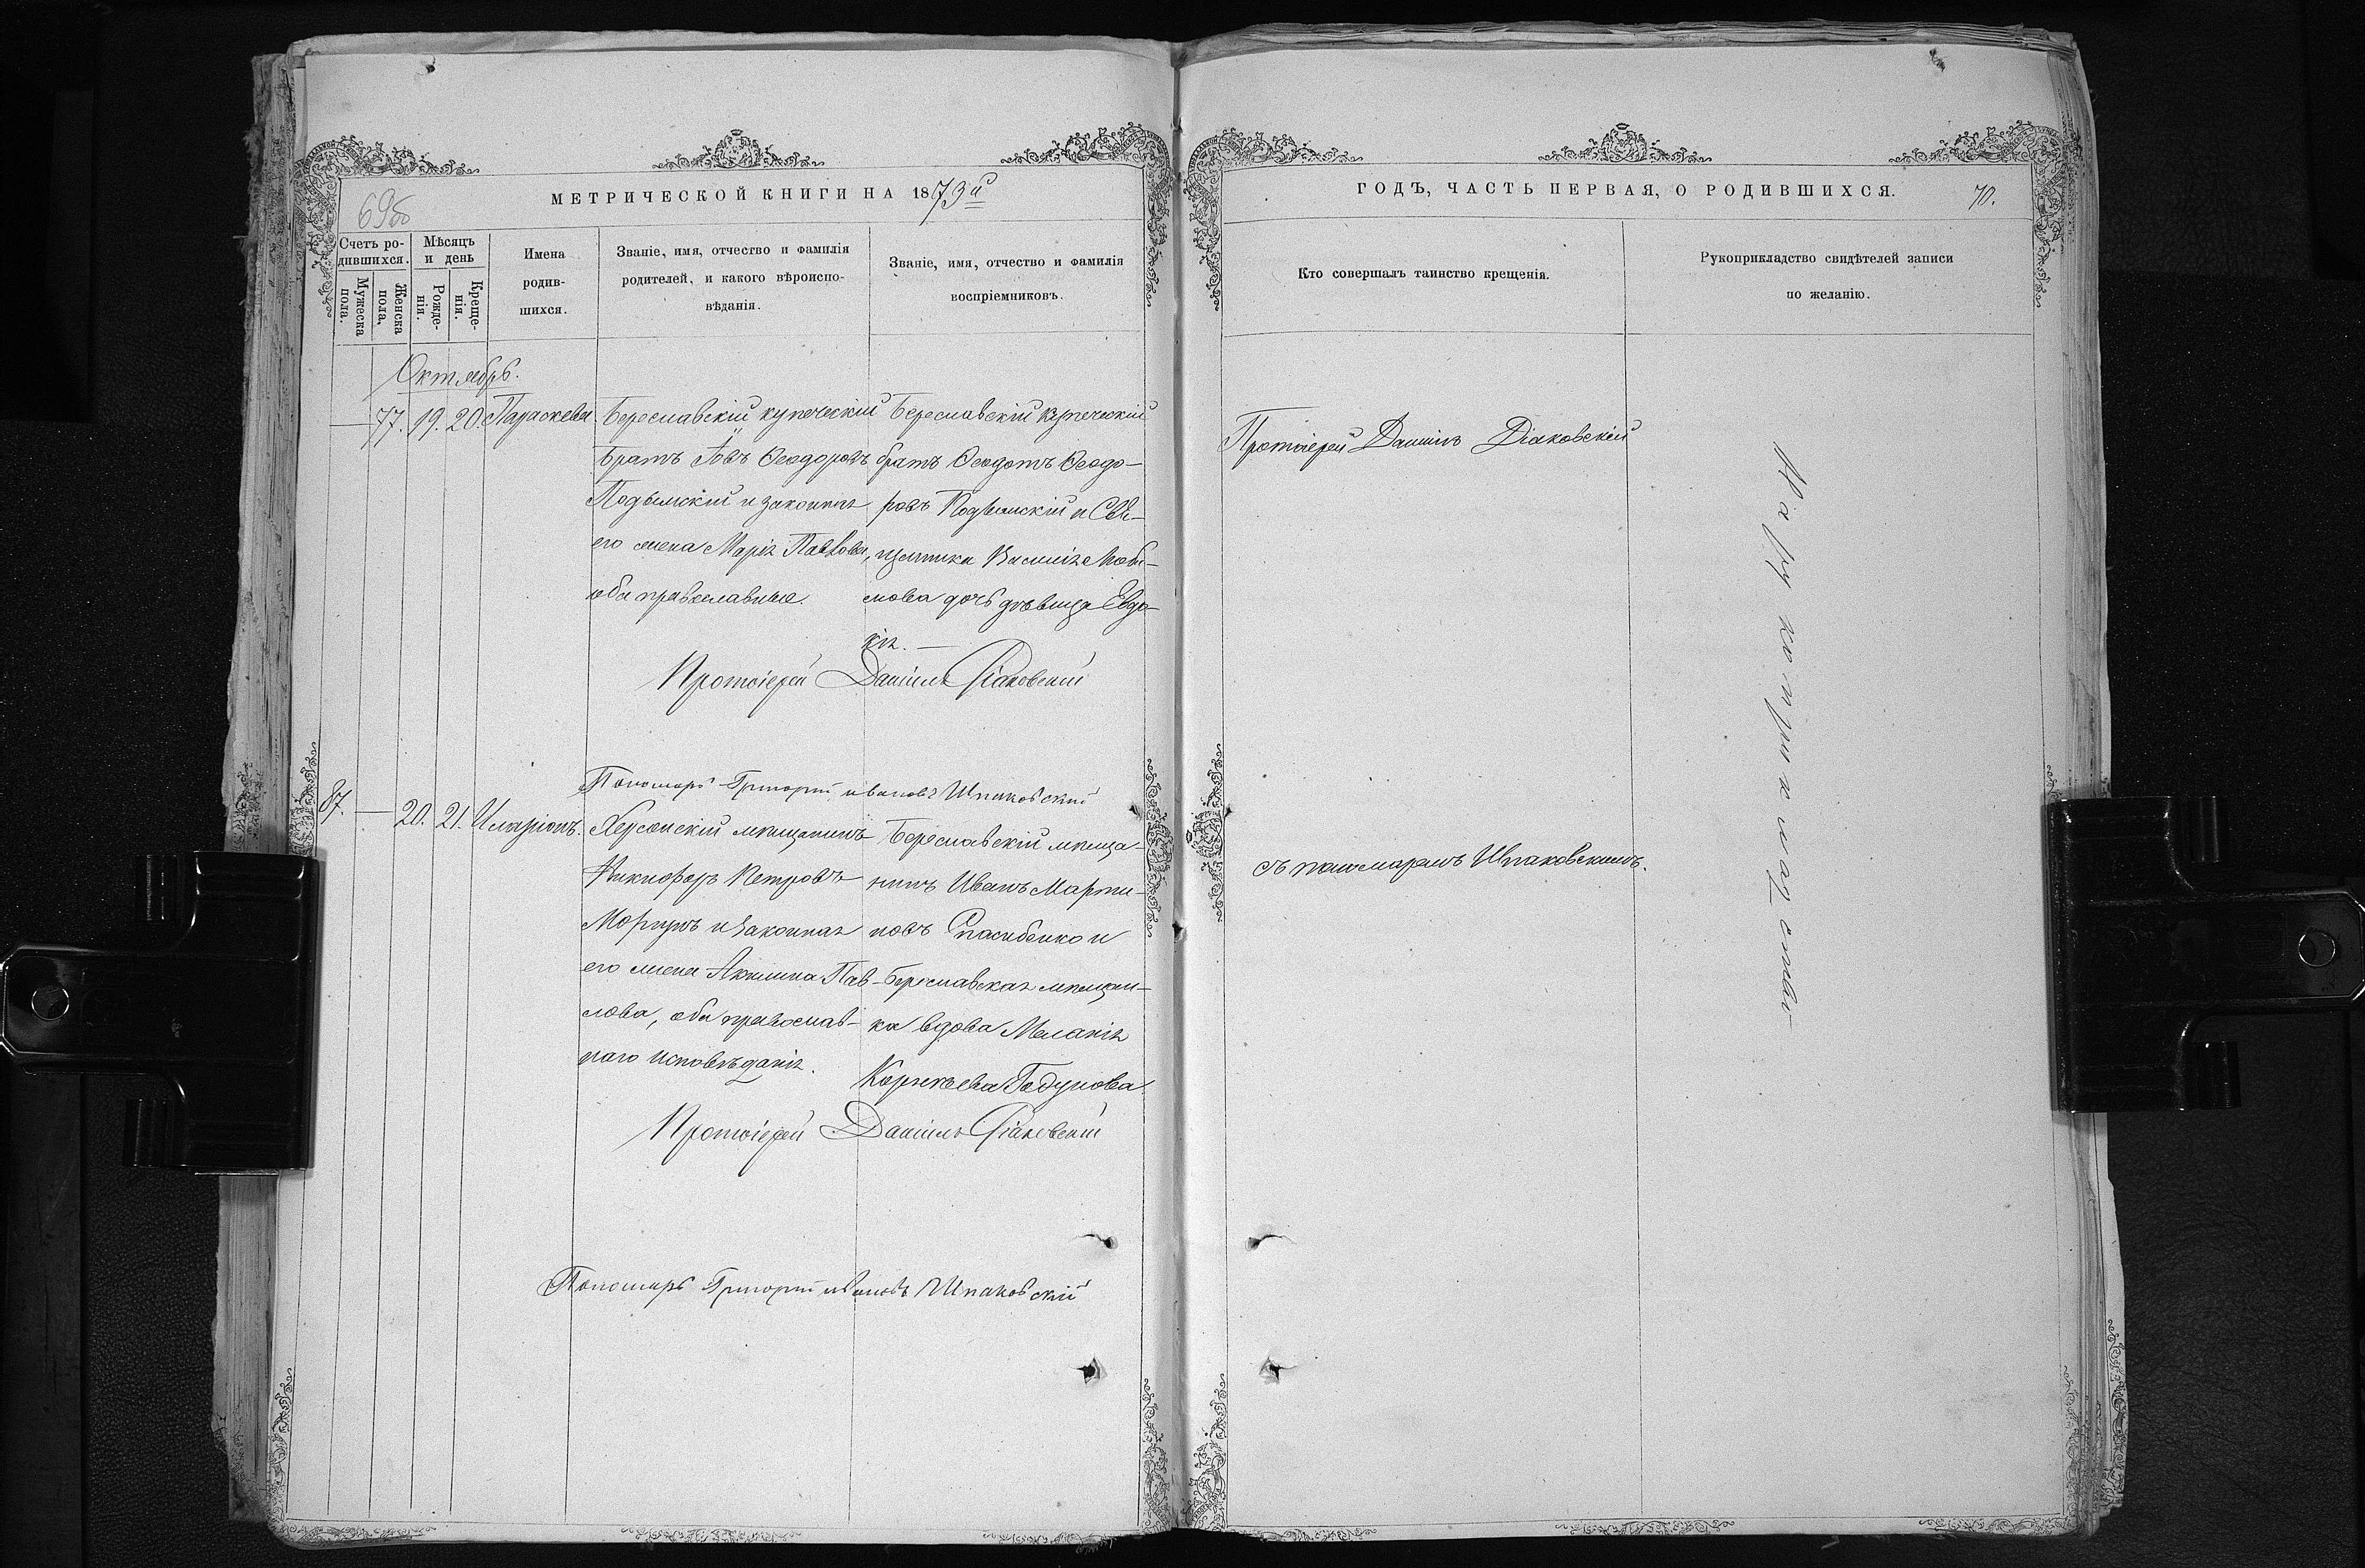 МЕТРИЧЕСКОЙ КНИГИ НА 1873й
69об
Счетъ ро-
дившихся.
Мужеска
пола.
Женска
пола.
Мѣсяцъ
и день
Рожде-
нія.
Креще-
нія.
Имена
родив-
шихся.
Званіе, имя, отчество и фамилія
родителей, и какого вѣроиспо-
вѣданія.
Званіе, имя, отчество и фамилія
воспріемниковъ.
Октябрь.
— 77. 19. 20. Параскева.
Бериславскій купеческій
братъ Іовъ Ѳеодоровъ
Подымскій и законная
его жена Марія Павлова,
оба православные.
Бериславскій купеческій
братъ Ѳеодотъ Ѳеодо-
ровъ Подымскій и Свя-
щенника Василія
дочь дѣвица Евдо-
кія. —
Протоіерей Даніилъ Діаковскій
Пономарь Григорій Ивановъ Шпаковскій
87. — 20. 21. Иларіонъ.
Херсонскій мѣщанинъ
Никифоръ Петровъ
Моргунъ и законная
его жена Акилина Пав-
лова, оба православ-
наго исповѣданія.
Бериславскій мѣща-
нинъ Иванъ Марти-
новъ Спасибенко и
Бериславская мѣщан-
ка вдова Меланія
Корнѣева Годунова.
Протоіерей Даніилъ Діаковскій
Пономарь Григорій Ивановъ Шпаковскій
ГОДЪ, ЧАСТЬ ПЕРВАЯ, О РОДИВШИХСЯ.
70.
Кто совершалъ таинство крещенія.
Рукоприкладство свидѣтелей записи
по желанію.
Протоіерей Даніилъ Діаковскій
съ пономаремъ Шпаковскимъ.